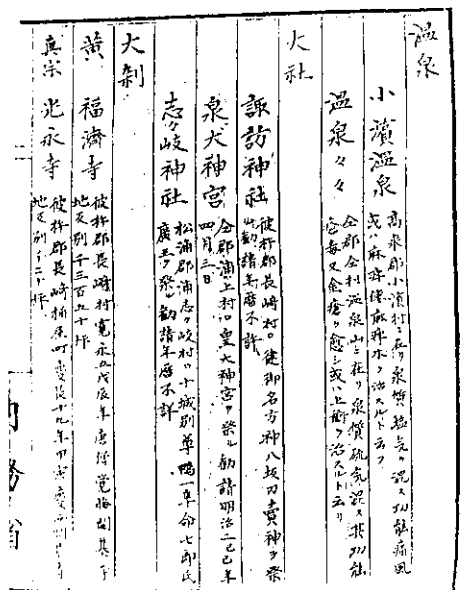 温泉
小濱温泉 高来郡小濱村ニ在リ泉質塩気ヲ混ス功能痛風
或ハ麻痺僂麻痺水ヲ治スルト云フ
温泉々々 仝郡仝村温泉山ニ在リ泉質硫気混ス其功能
瘡毒又金瘡ヲ愈シ或ハ上衝ヲ治スルト云フ
大社
諏訪神社 彼杵郡長崎村ニ 健御名方神八坂刀賣神ヲ祭ル
勧請年暦不詳
皇大神宮 仝郡浦上村ニ 皇大神宮ヲ祭ル 勧請明治二己巳年
四月三日
志々岐神社 松浦郡浦志々岐村ニ 十城別尊鴨一隼命七郎氏
廣 ヲ祭ル 勧請年暦不詳
大刹
黄 福濟寺 彼杵郡長崎村寛永五戊辰年唐僧覚悔創 其下
地反別千三百五十坪
真宗 光永寺 彼杵郡長崎桶屋町慶長十九年甲寅慶西
地反別
内務省